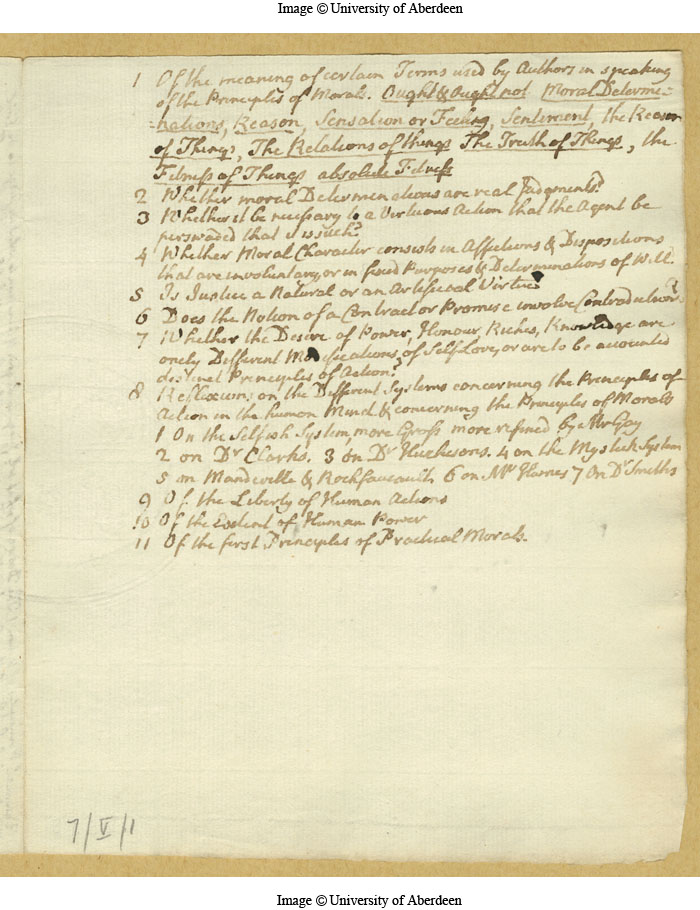 Image © University of Aberdeen
1 Of the meaning of certain Terms used by Authors in speaking
of the Principles of Morals. Ought & Ought not Moral Determi-
-nations, Reason, Sensation or Feeling, Sentiment, the Reason
of Things, The Relations of things The Truth of Things, the
Fitness of Things absolute Fitness
2 Whether moral Determinations are real Judgments?
3 Whether it be necessary to a Virtuous Action that the Agent be
perswaded that it is such?
4 Whether Moral Character consists in Affections & Dispositions
that are involuntary, or in fixed Purposes & Determinations of Will.
5 Is Justice a Natural or an Artificial Virtue
6 Does the Notion of a Contract or Promise involve Contradiction?
7 Whether the Desire of Power, Honour, Riches, Knowledge are
onely Different Modifications of Self Love, or are to be accounted
distinct Principles of Action?
8 Reflexions on the Different Systems concerning the Principles of
Action in the human Mind & concerning the Principles of Morals
1 On the Selfish System, more Gross more refined by Mr Gay
2 on Dr Clarks. 3 on Dr Huchesons. 4 on the Mystick System
5 on Mandeville & Rochfaucault 6 on Mr Humes 7 On Dr Smiths
9 Of the Liberty of Human Actions
10 Of the Extent of Human Power
11 Of the first Principles of Practical Morals.
7/V/1
Image © University of Aberdeen